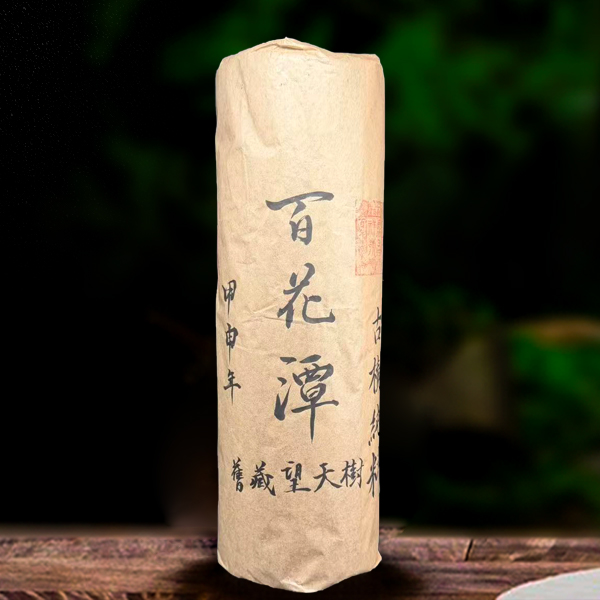 古樹純料
百花潭
甲申年
舊藏望天樹